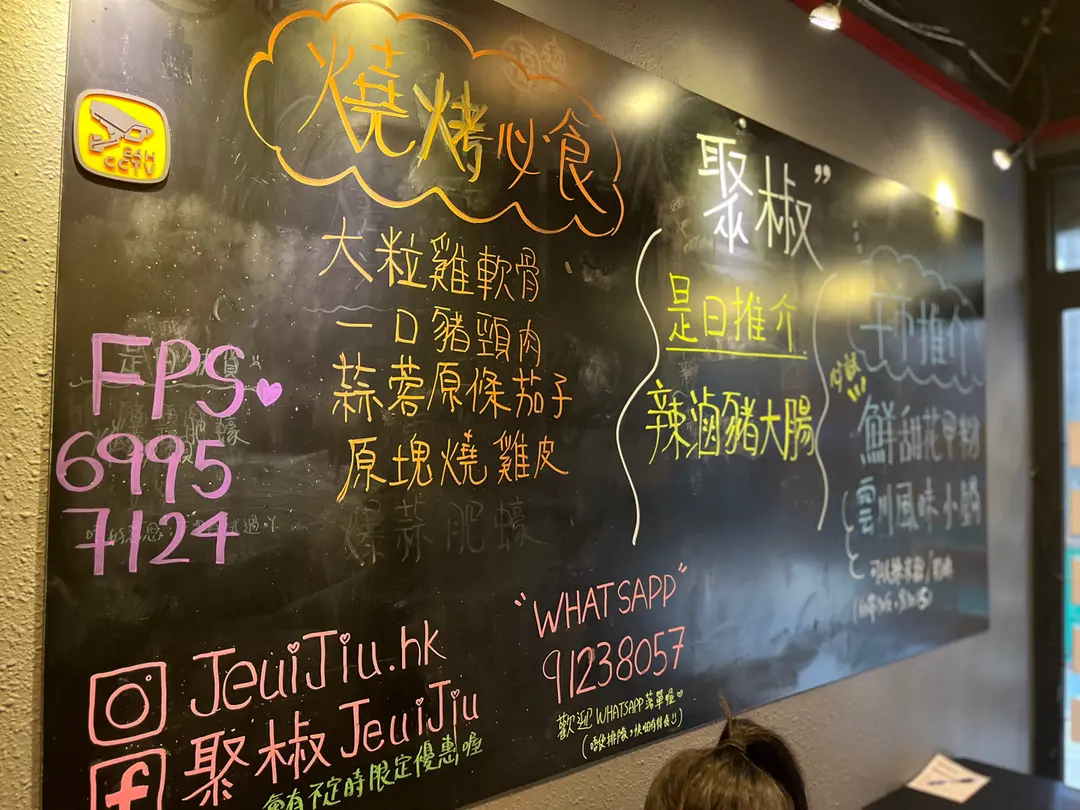 燒烤必食
大粒雞軟骨
一口豬頸肉
蒜蓉原條茄子
原塊燒雞皮
爆蒜肥蠔
聚椒”
是日推介
辣滷豬大腸
推介
鮮甜花甲粉
雲川風味小鍋
CCTV
FPS♥
6995
7124
“WHATSAPP”
91238057
歡迎WHATSAPP落單喔♥
JeuiJiu.hk
聚椒JeuiJiu
會有不定時限定優惠喔